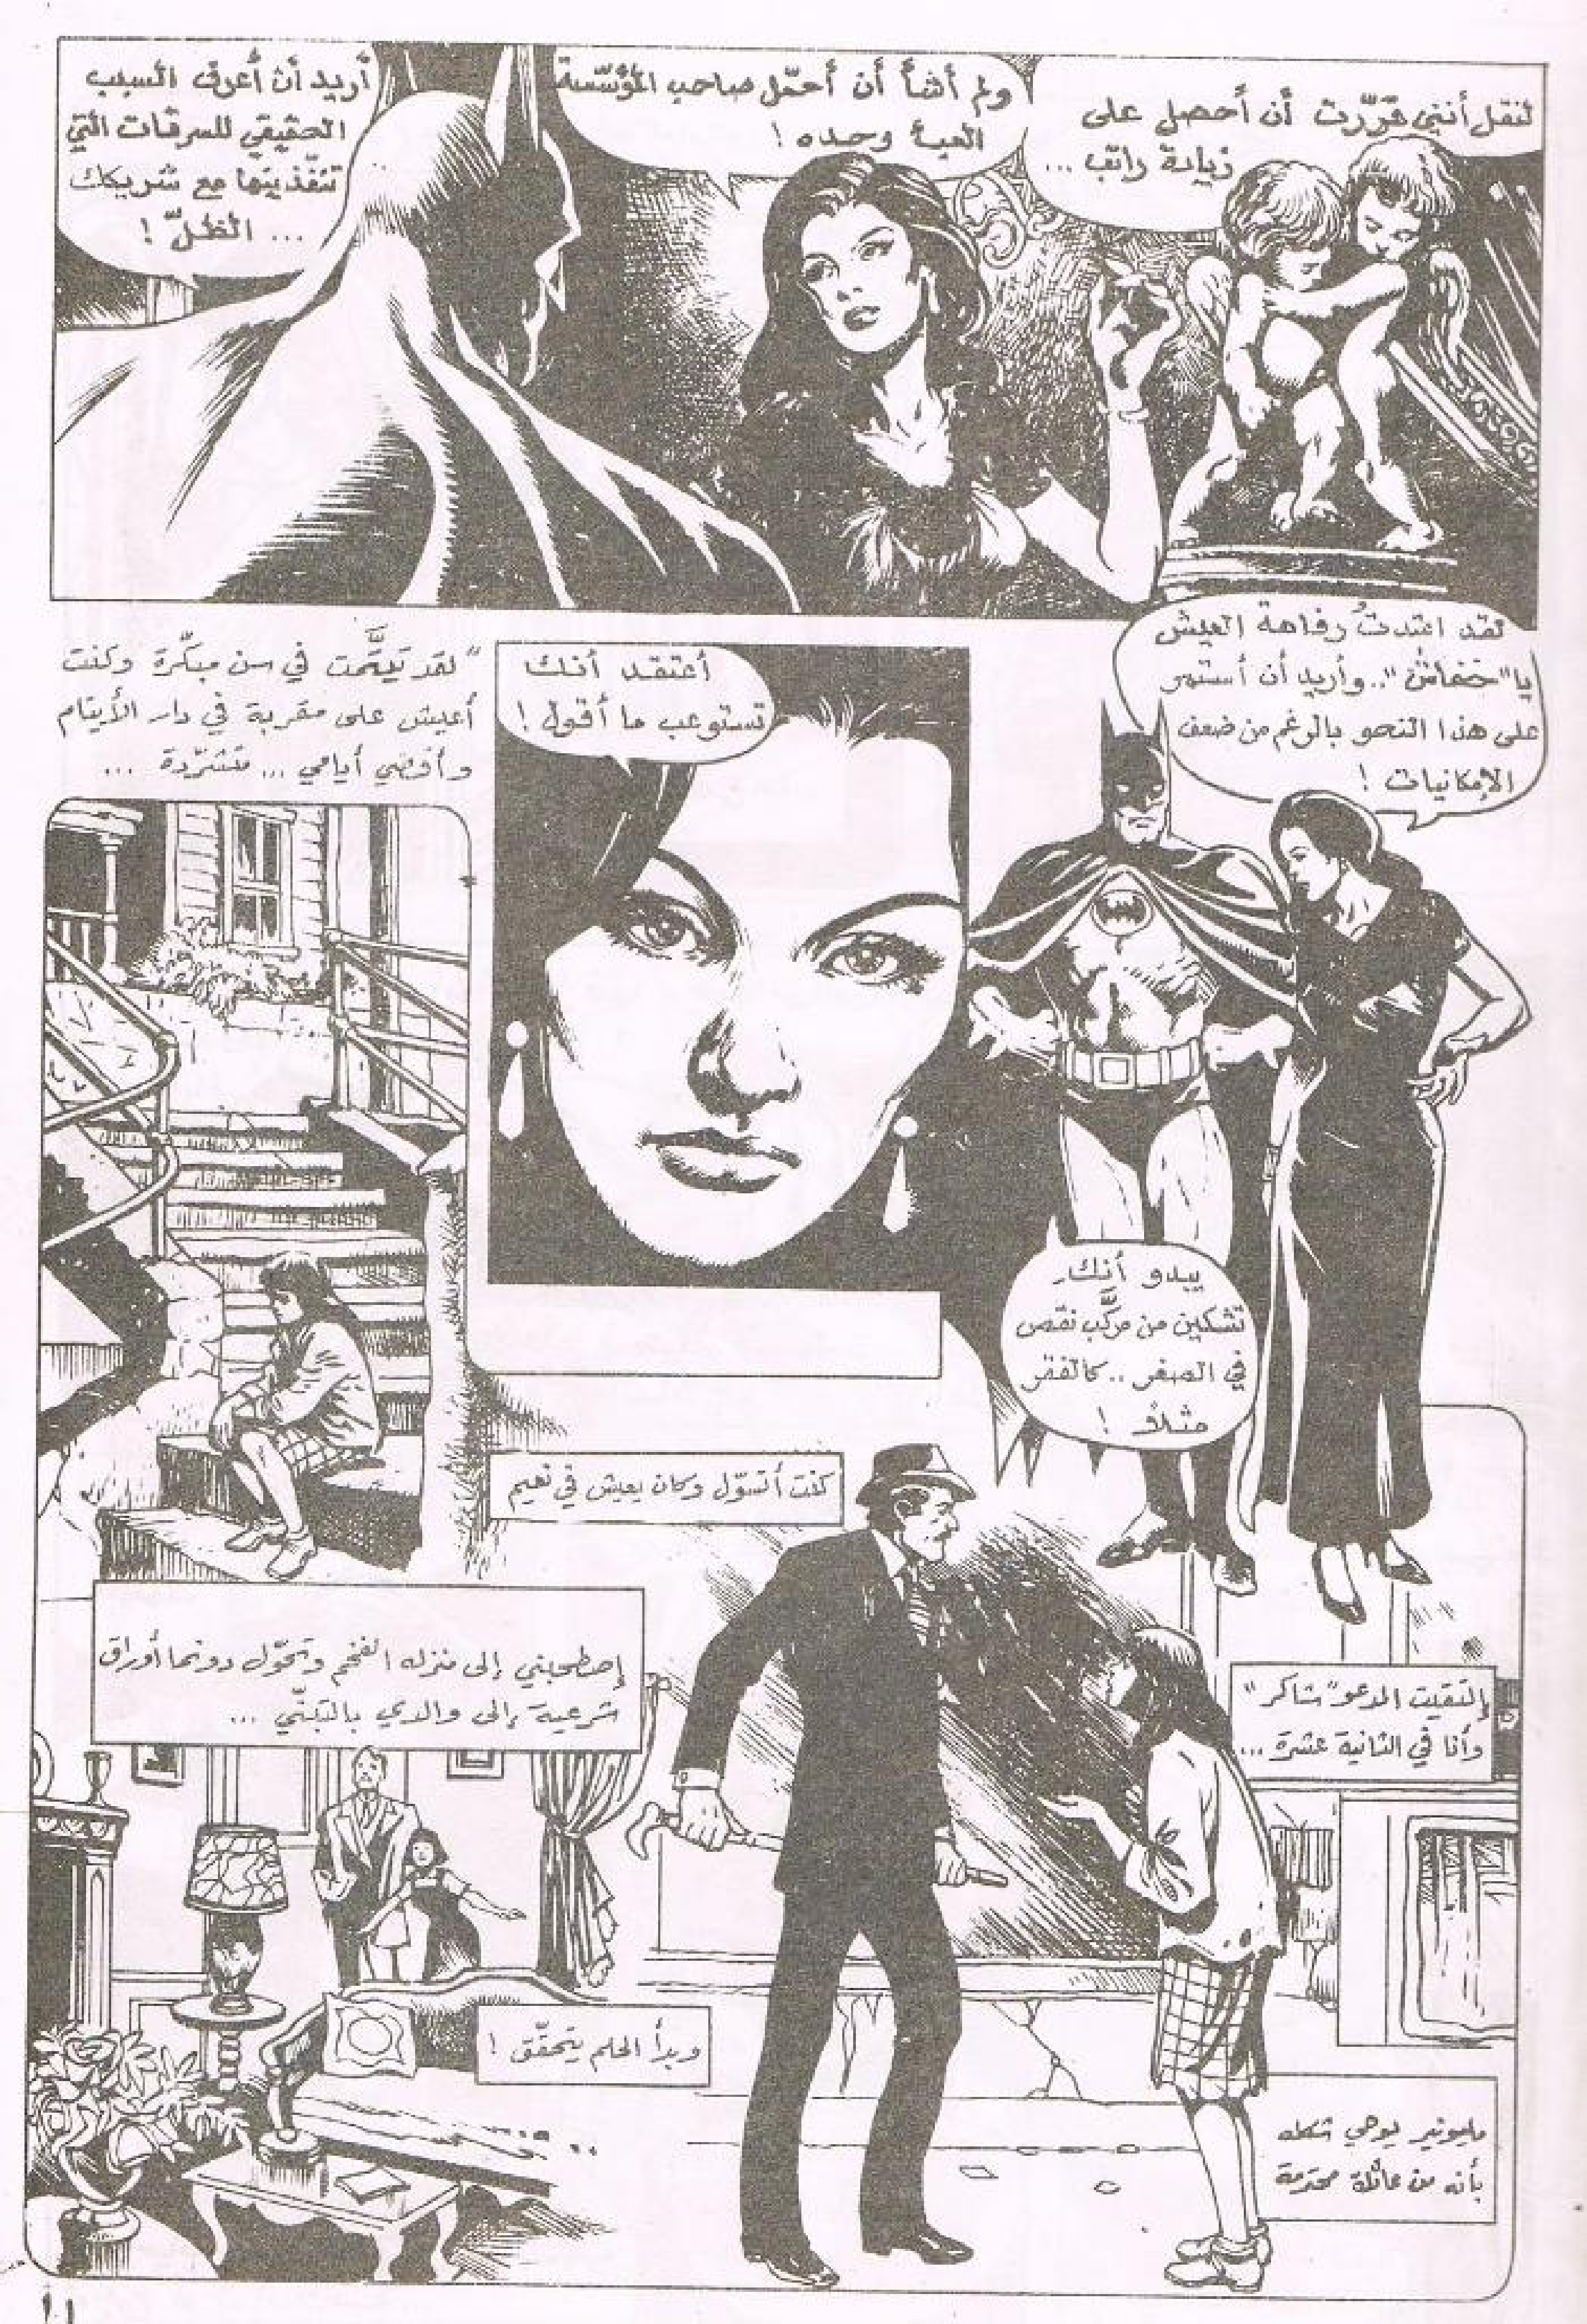 لنقل أنني قرّرت أن أحصل على
زيادة راتب ...
ولم أشأ أن أحمّل صاحب المؤسّسة
العبء وحده !
أريد أن أعرف السبب
الحقيقي للسرقات التي
تنفّذينها مع شريكك
... الظلّ !
لقد اعتدتُ رفاهة العيش
يا "خفاش".. وأريد أن أستمر
على هذا النحو بالرغم من ضعف
الإمكانيات !
يبدو أنك
تشكين من مركّب نقص
في الصغر .. كالفقر
مثلاً !
أعتقد أنك
تستوعب ما أقول !
"لقد تيتّمت في سن مبكّرة وكنت
أعيش على مقربة في دار الأيتام
وأقضي أيامي ... متشرّدة ...
إلتقيت المدعو "شاكر"
وأنا في الثانية عشرة ...
مليونير يوحي شكله
بأنه من عائلة محترمة
كنت أتسوّل وكان يعيش في نعيم
إصطحبني إلى منزله الفخم وتحوّل دونما أوراق
شرعية إلى والدي بالتبنّي ...
وبدأ الحلم يتحقّق !